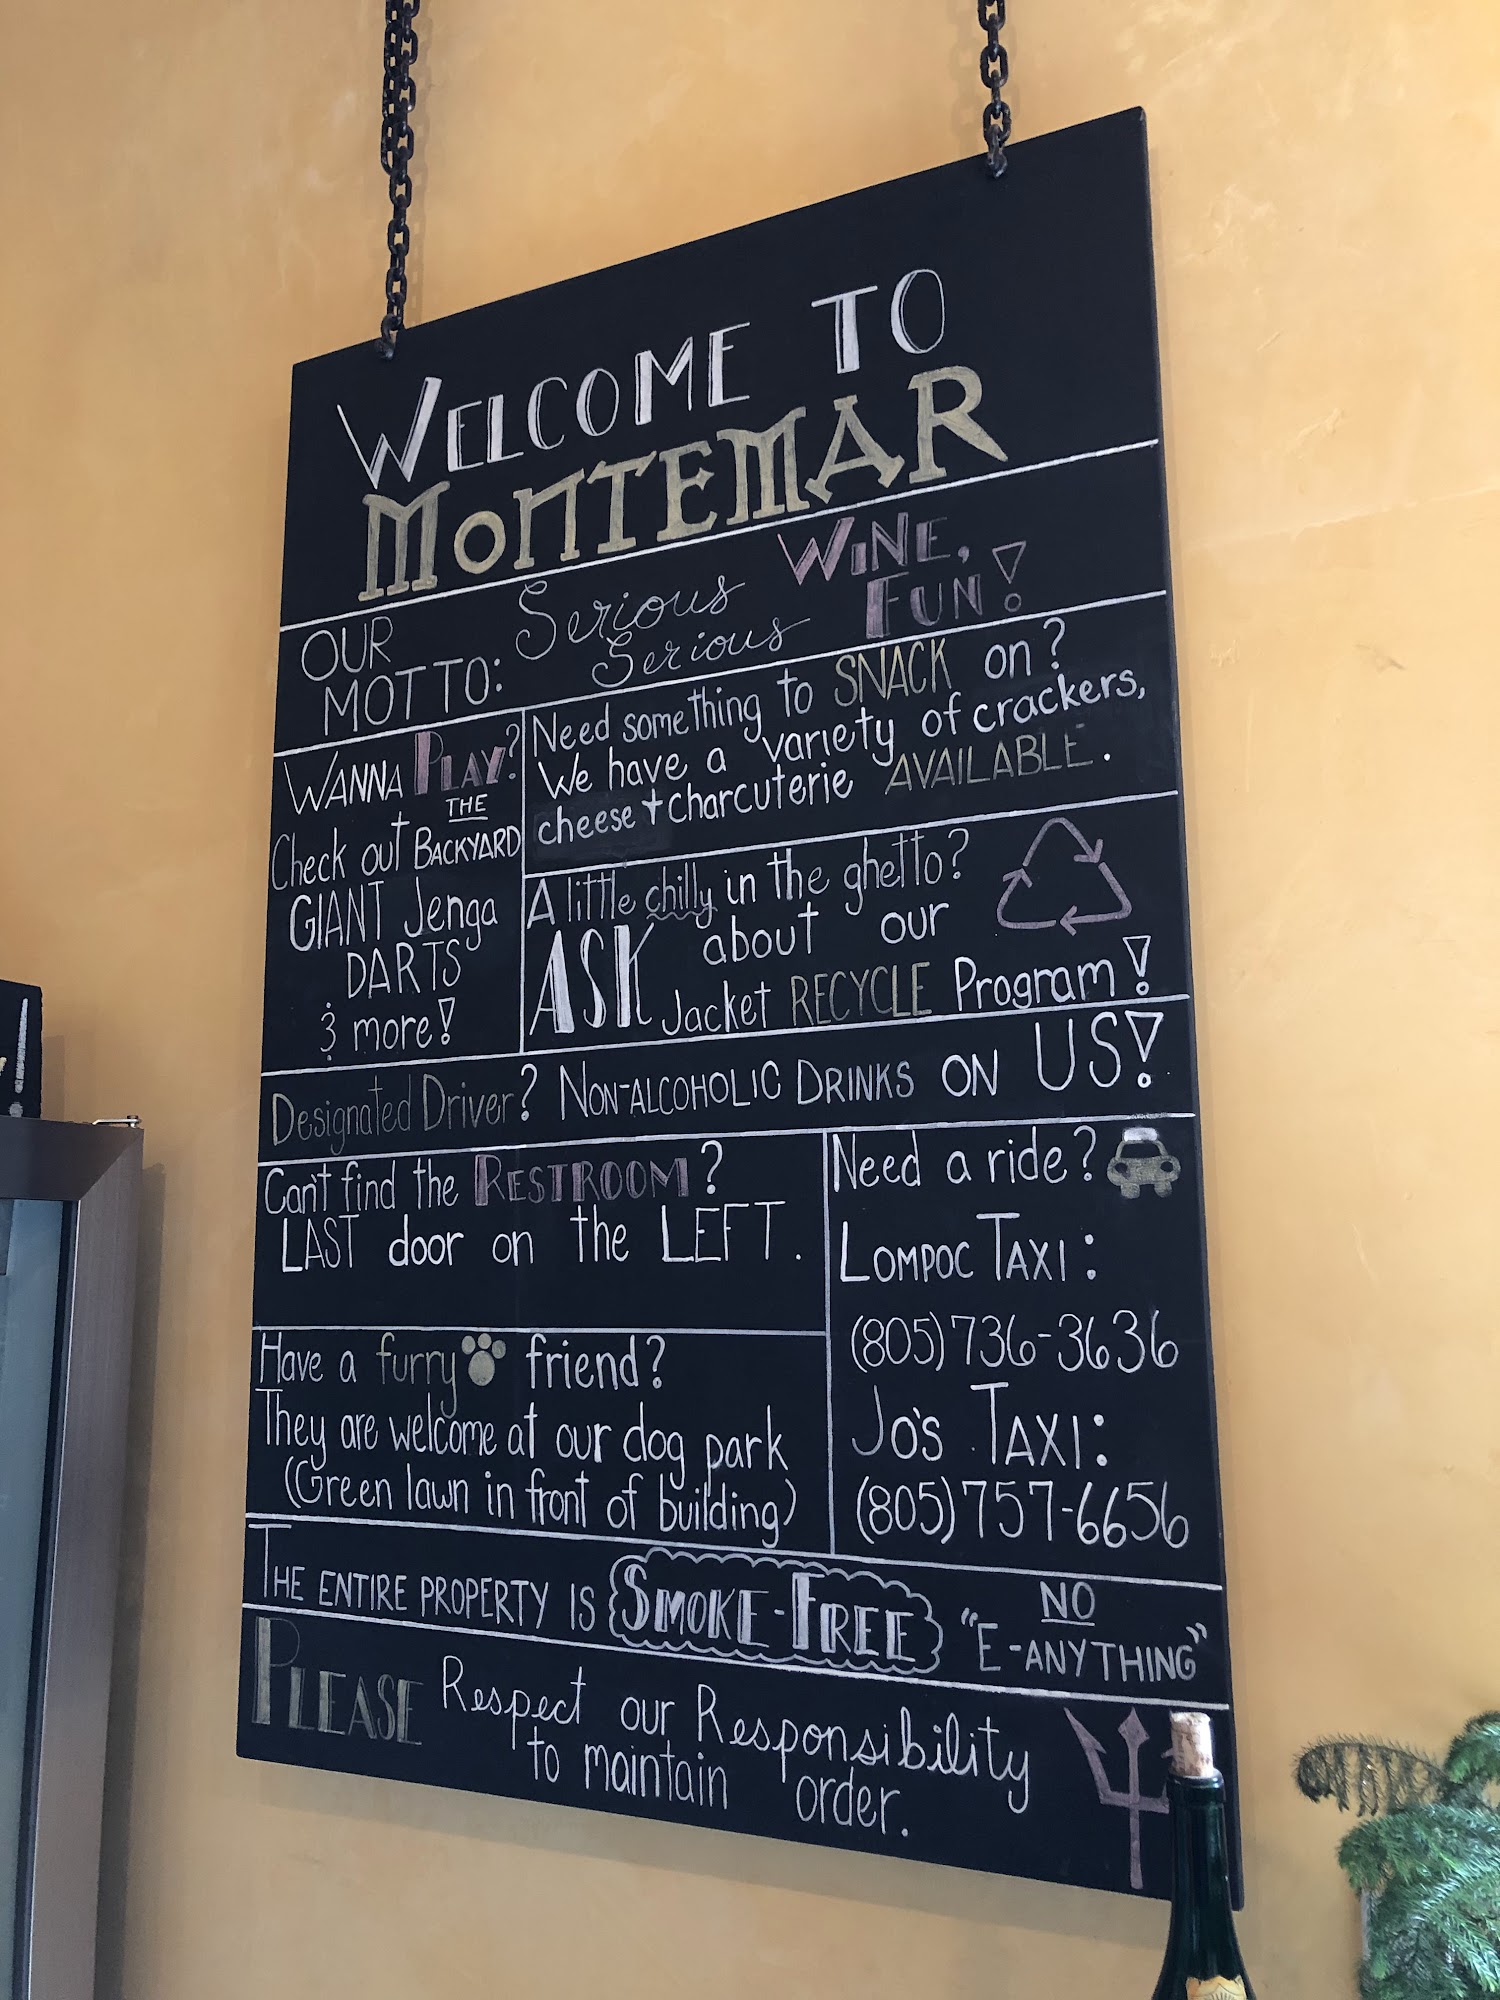 WELCOME TO
MONTEMAR
OUR
MOTTO:
Serious WINE,
Serious FUN!
WANNA PLAY?
Check out THE BACKYARD
GIANT Jenga
DARTS
& more!
Need something to SNACK on?
We have a variety of crackers,
cheese + charcuterie AVAILABLE.
A little chilly in the ghetto?
ASK about our
Jacket RECYCLE Program!
Designated Driver? NON-ALCOHOLIC DRINKS ON US!
Can't find the RESTROOM?
LAST door on the LEFT.
Have a furry friend?
They are welcome at our dog park
(Green lawn in front of building)
Need a ride?
LOMPOC TAXI:
(805)736-3636
JO'S TAXI:
(805)757-6656
THE ENTIRE PROPERTY IS SMOKE-FREE NO
"E-ANYTHING"
PLEASE Respect our Responsibility
to maintain order.